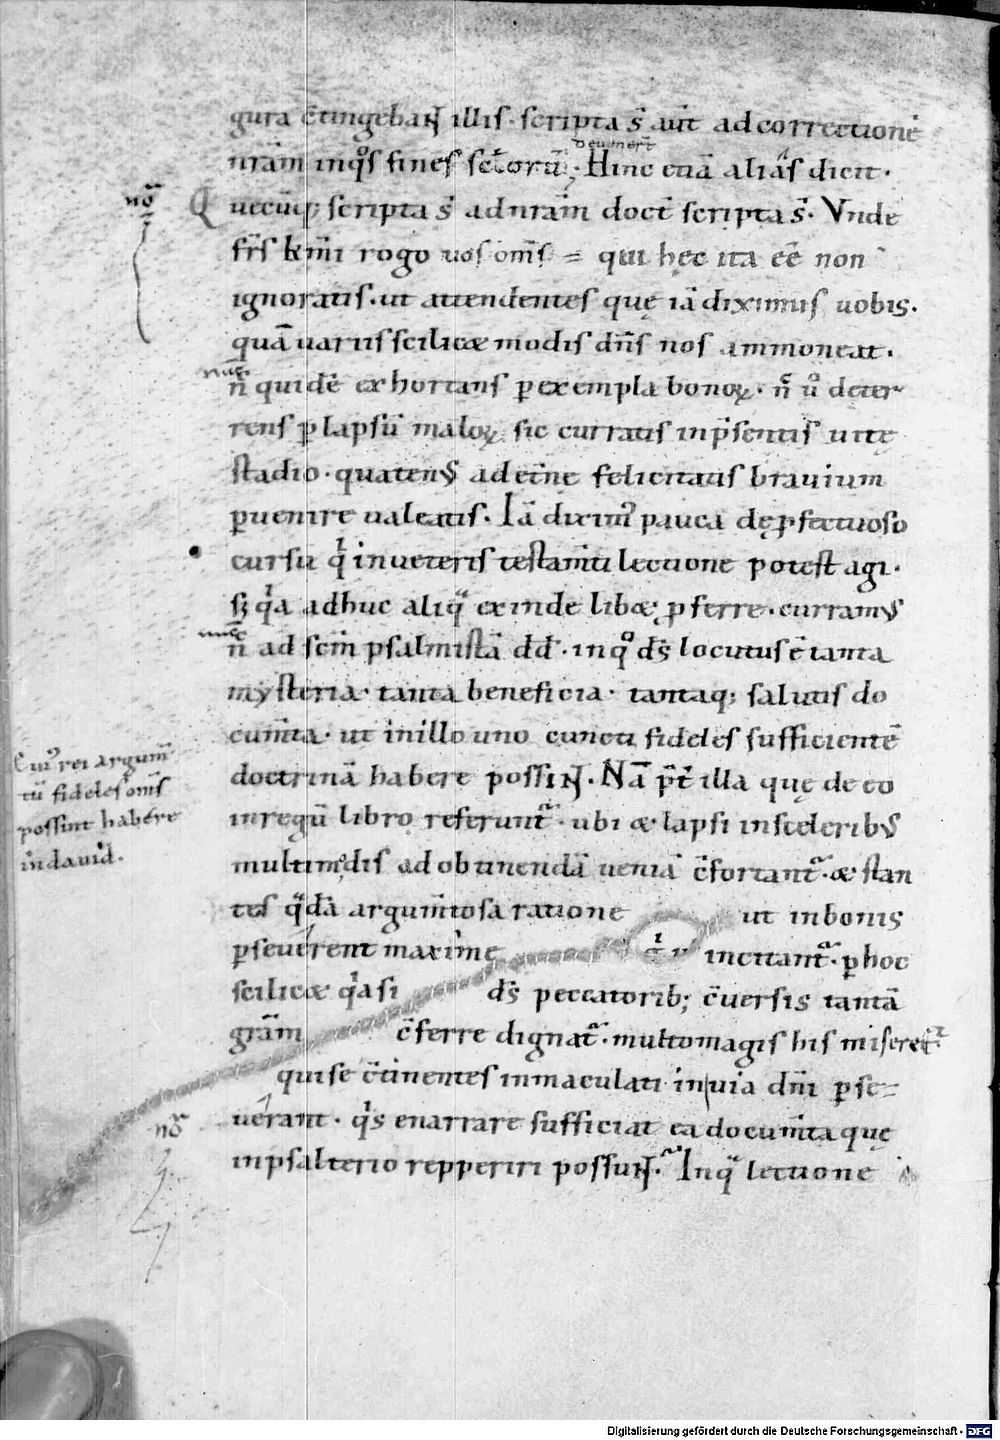 gura c̄tingebant illis. scripta s̄ aut̄ ad correctionē
nr̄am inq°s fines sc̄lorū deuenert̄. Hinc etiā alias dicit.
nō Quecūq; scripta s̄ ad nr̄am doct̄ scripta s̄. Vnde
fr̄s km̄i rogo uos om̄s = qui hęc ita eē non
ignoratis. ut attendentes quę iā diximus uobis.
quā uariis scilicæ modis dn̄s nos ammoneat.
nunc
n̄ quidē exhortans p exempla bonoꝝ. n̄ u° deter
rens p lapsū maloꝝ sic curratis in p̄sentis uitę
stadio. quaten; ad etn̄ę felicitatis brauium
puenire ualeatis. Iā dixim; pauca dę pfectuoso
cursu qi in ueteris testam̄ti lectione potest agi.
sꝫ qia adhuc aliq̄ exinde libæ pferre. curram;
nunc
n̄ ad sc̄m psalmistā dd̄. in q° ds̄ locutus ē tanta
mysteria. tanta beneficia. tantaq; salutis do
cum̄ta. ut in illo uno cuncti fideles sufficientē
doctrinā habere possint. Nā p̄t illa quę de eo
Cui; rei argum̄
tū fideles om̄s
possint habere
in dauid.
in regū libro referunt̄. ubi æ lapsi in scelerib;
multimodis ad obtinendā ueniā c̄fortant̄. æ stan
tes q̄dā argum̄tosa ratione ut in bonis
pseuerent maxime incitant̄. p hoc
scilicæ qia si ds̄ peccatorib; c̄uersis tantā
gr̄am c̄ferre dignat̄. multo magis his miseret̄
qui se c̄tinentes inmaculati in uia dn̄i pse=
nō
uerant. qis enarrare sufficiat ea docum̄ta quę
in psalterio repperiri possunt. In q̄ lectione
Digitalisierung gefördert durch die Deutsche Forschungsgemeinschaft - DFG